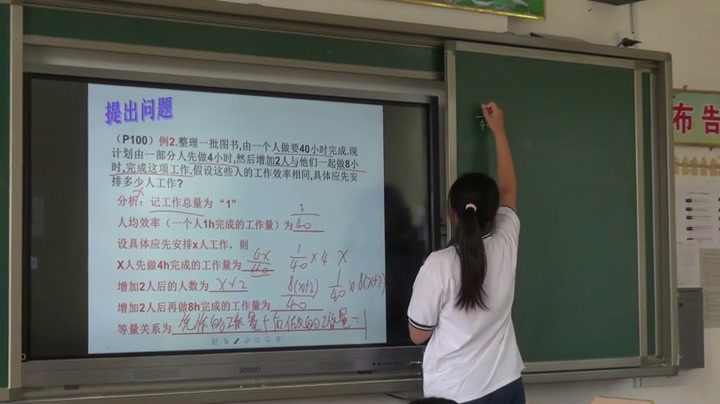 提出问题
（P100）例2.整理一批图书,由一个人做要40小时完成.现
计划由一部分人先做4小时,然后增加2人与他们一起做8小
时,完成这项工作.假设这些人的工作效率相同,具体应先安
排多少人工作?
x
分析：记工作总量为“1”
人均效率（一个人1h完成的工作量）为 1/40
设具体应先安排x人工作，则
X人先做4h完成的工作量为 4x/40 1/40 × 4 x
增加2人后的人数为 x+2
增加2人后再做8h完成的工作量为 8(x+2)/40 1/40 × 8(x+2)
等量关系为 先做的工作量+后做的工作量=1
布告